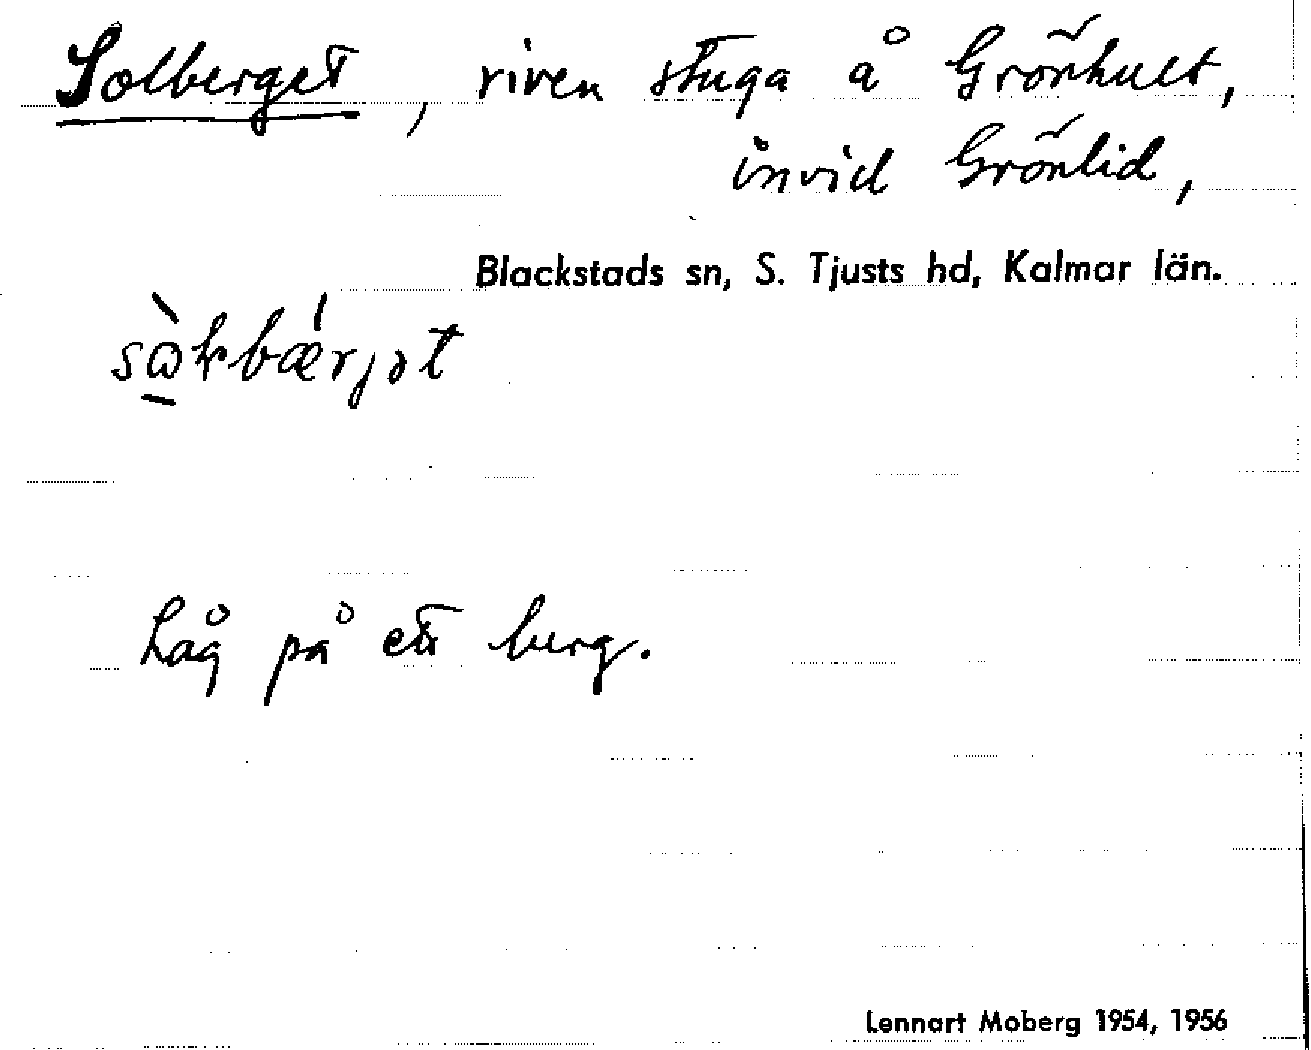 Solberget, riven stuga å Grönhult,
invid Grönlid,
Blackstads sn, S. Tjusts hd, Kalmar län.
Låg på ett berg.
Lennart Moberg 1954, 1956